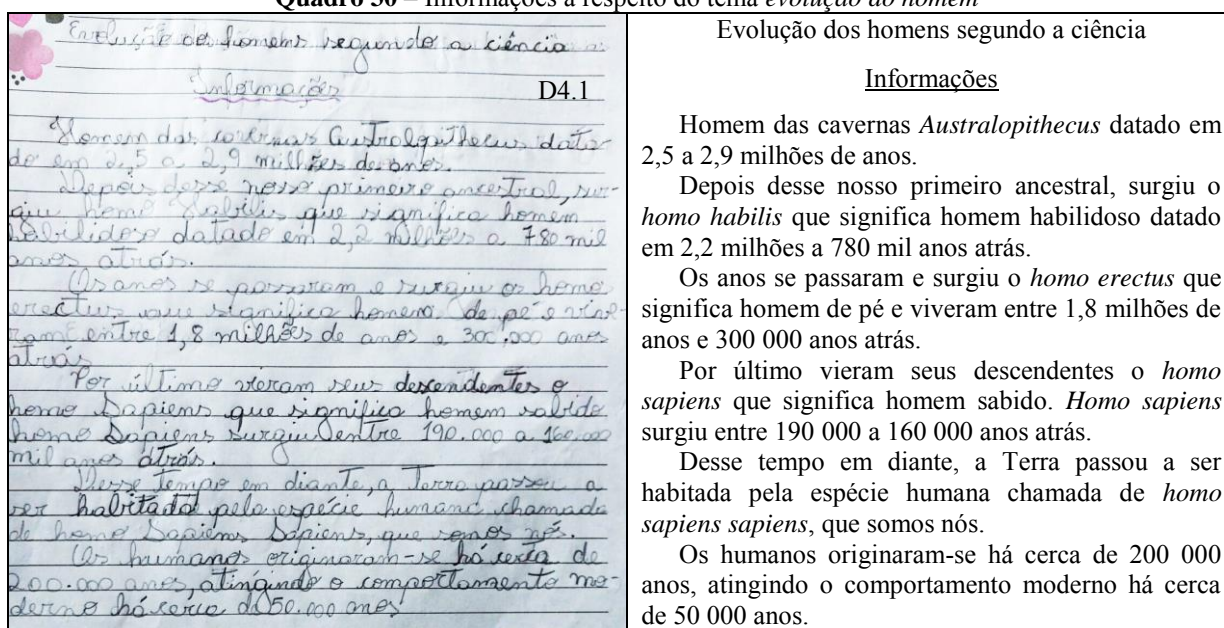 Quadro 30 – Informações a respeito do tema evolução do homem
Evolução dos homens segundo a ciência
Informações
D4.1
Homem das cavernas Australopithecus data-
do em 2,5 a 2,9 milhões de anos.
Depois desse nosso primeiro ancestral, sur-
giu homo Habilis que significa homem
habilidoso datado em 2,2 milhões a 780 mil
anos atrás.
Os anos se passaram e surgiu os homo
erectus que significa homem de pé e vive-
ram entre 1,8 milhões de anos e 300.000 anos
atrás
Por último vieram seus descendentes o
homo Sapiens que significa homem sabido
homo Sapiens surgiu entre 190.000 a 160.000
mil anos atrás.
Desse tempo em diante, a Terra passou a
ser habitada pela espécie humana chamada
de homo Sapiens Sapiens, que somos nós.
Os humanos originaram-se há cerca de
200.000 anos, atingindo o comportamento mo-
derno há cerca de 50.000 anos
Evolução dos homens segundo a ciência
Informações
Homem das cavernas Australopithecus datado em
2,5 a 2,9 milhões de anos.
Depois desse nosso primeiro ancestral, surgiu o
homo habilis que significa homem habilidoso datado
em 2,2 milhões a 780 mil anos atrás.
Os anos se passaram e surgiu o homo erectus que
significa homem de pé e viveram entre 1,8 milhões de
anos e 300 000 anos atrás.
Por último vieram seus descendentes o homo
sapiens que significa homem sabido. Homo sapiens
surgiu entre 190 000 a 160 000 anos atrás.
Desse tempo em diante, a Terra passou a ser
habitada pela espécie humana chamada de homo
sapiens sapiens, que somos nós.
Os humanos originaram-se há cerca de 200 000
anos, atingindo o comportamento moderno há cerca
de 50 000 anos.